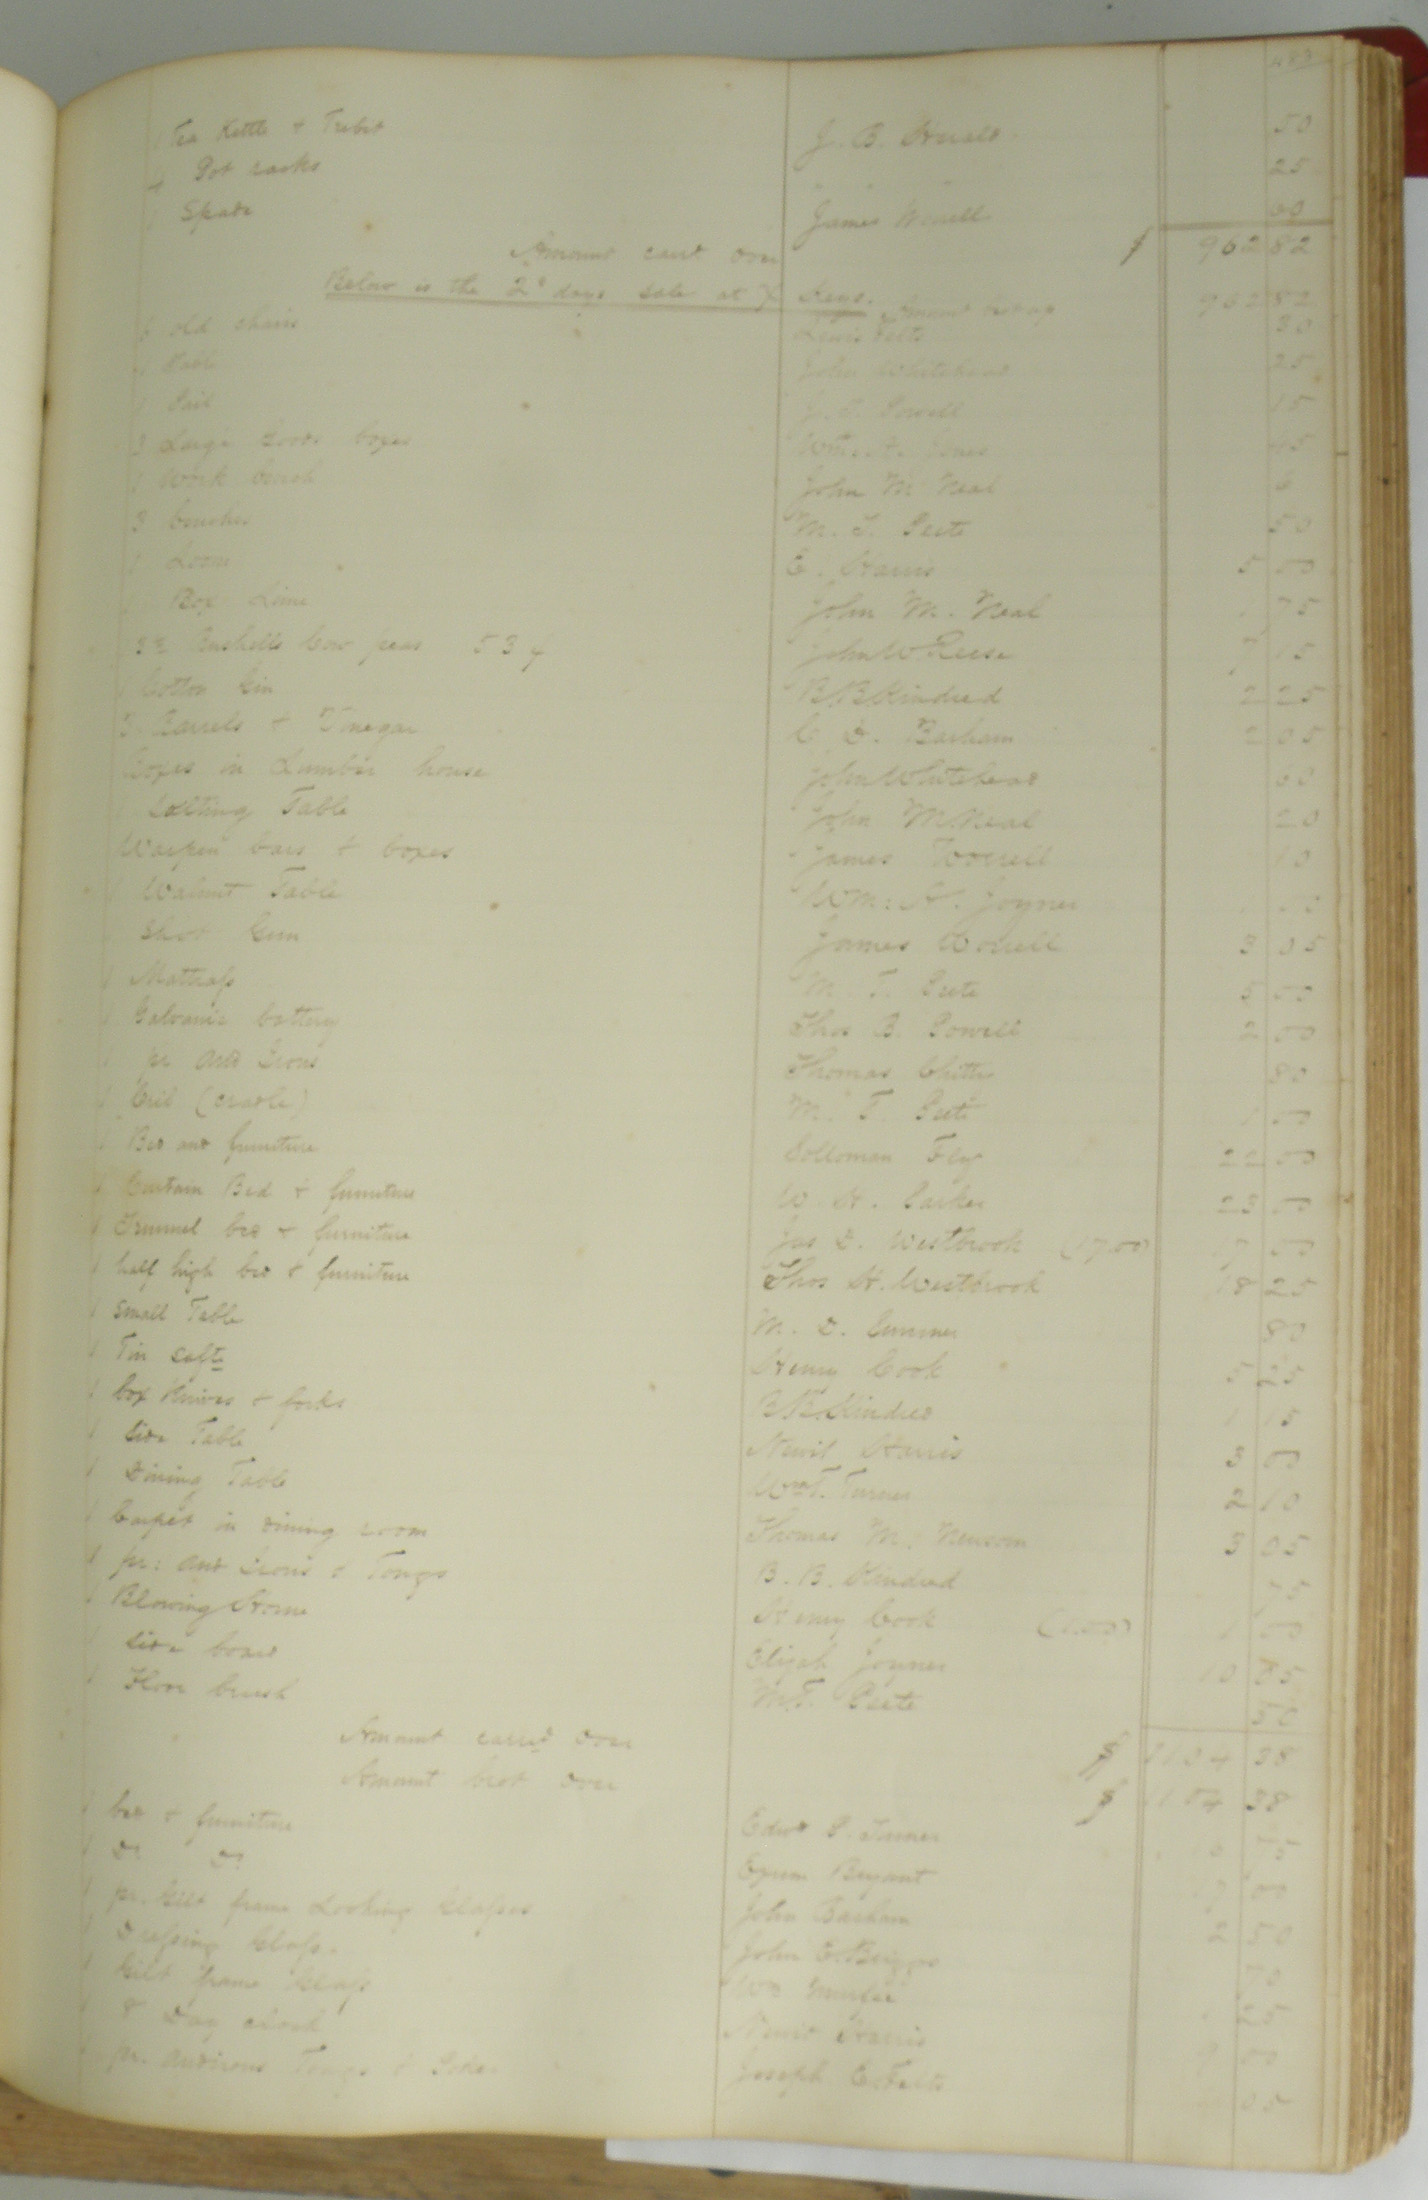 1 Tea Kettle & Trebit J. B. 50
4 Pot racks " " " 25
1 Spade James Worrell
Amount card over $ 962 82
Below is the 2d days sale at X Keys. Amount brot up 962 82
6 old chairs Lewis Felts 30
1 Table John Whitehead 25
1 Pail J. Powell 15
3 Large boxes Wm. A. Jones 45
1 Work bench John M Neal 6
3 benches M. T. Peete 50
1 Loom C. Harris 5 00
Box Lime John M. Neal 1 75
Bushells Cow peas 53 John W Reese 7 15
1 Cotton Gin B. B. Kindred 2 25
3 Barrels & Vinegar C. D. Barham 2 05
Boxes in Lumber house John Whitehead 60
Salting Table John M. Neal 20
Warpin bars & boxes James Worrell 10
1 Walnut Table Wm: H. Joyner
Shot Gun James Worrell 3 05
1 Mattrass M. T. Peete 5 00
1 Galvanic battery Thos B. Powell 2 00
1 pr and Irons Thomas Chitty 80
1 Crib (cradle) M. T. Peete 1 00
1 Bed and furniture Solloman Fly 22 00
1 Curtain Bed & furniture W. H. Parker 23 00
1 Trunnel bed & furniture Jas D. Westbrook (17.00) 17 00
1 half high bed & furniture Thos H. Westbrook 18 25
1 Small Table M. D. 80
1 Tin Safe Henry Cook 5 25
1 box Knives & forks B. B. Kindred 1 15
1 Side Table Newit Harris 3 00
1 Dining Table Wm T. Turner 2 10
1 Carpet in dining room Thomas M. Newsom 3 05
1 pr: and Irons & Tongs B. B. Kindred 75
1 Blowing Horne Henry Cook (1.00) 1 00
1 Side board Elijah Joyner 10 85
1 Floor brush M. T. Peete 50
Amount carrd over $ 1104 38
Amount brot over $ 1104 38
1 bed & furniture Edwd P. Turner
1 Do Do Exum Bryant
1 pr. Gilt frame Looking Glasses John Barham 2 50
1 Dressing Glass. John E. Briggs 70
1 Gilt frame Glass Wm 25
1 8 Day clock Newit Harris 9 00
1 pr. andirons Tongs & Joseph E. Felts 05